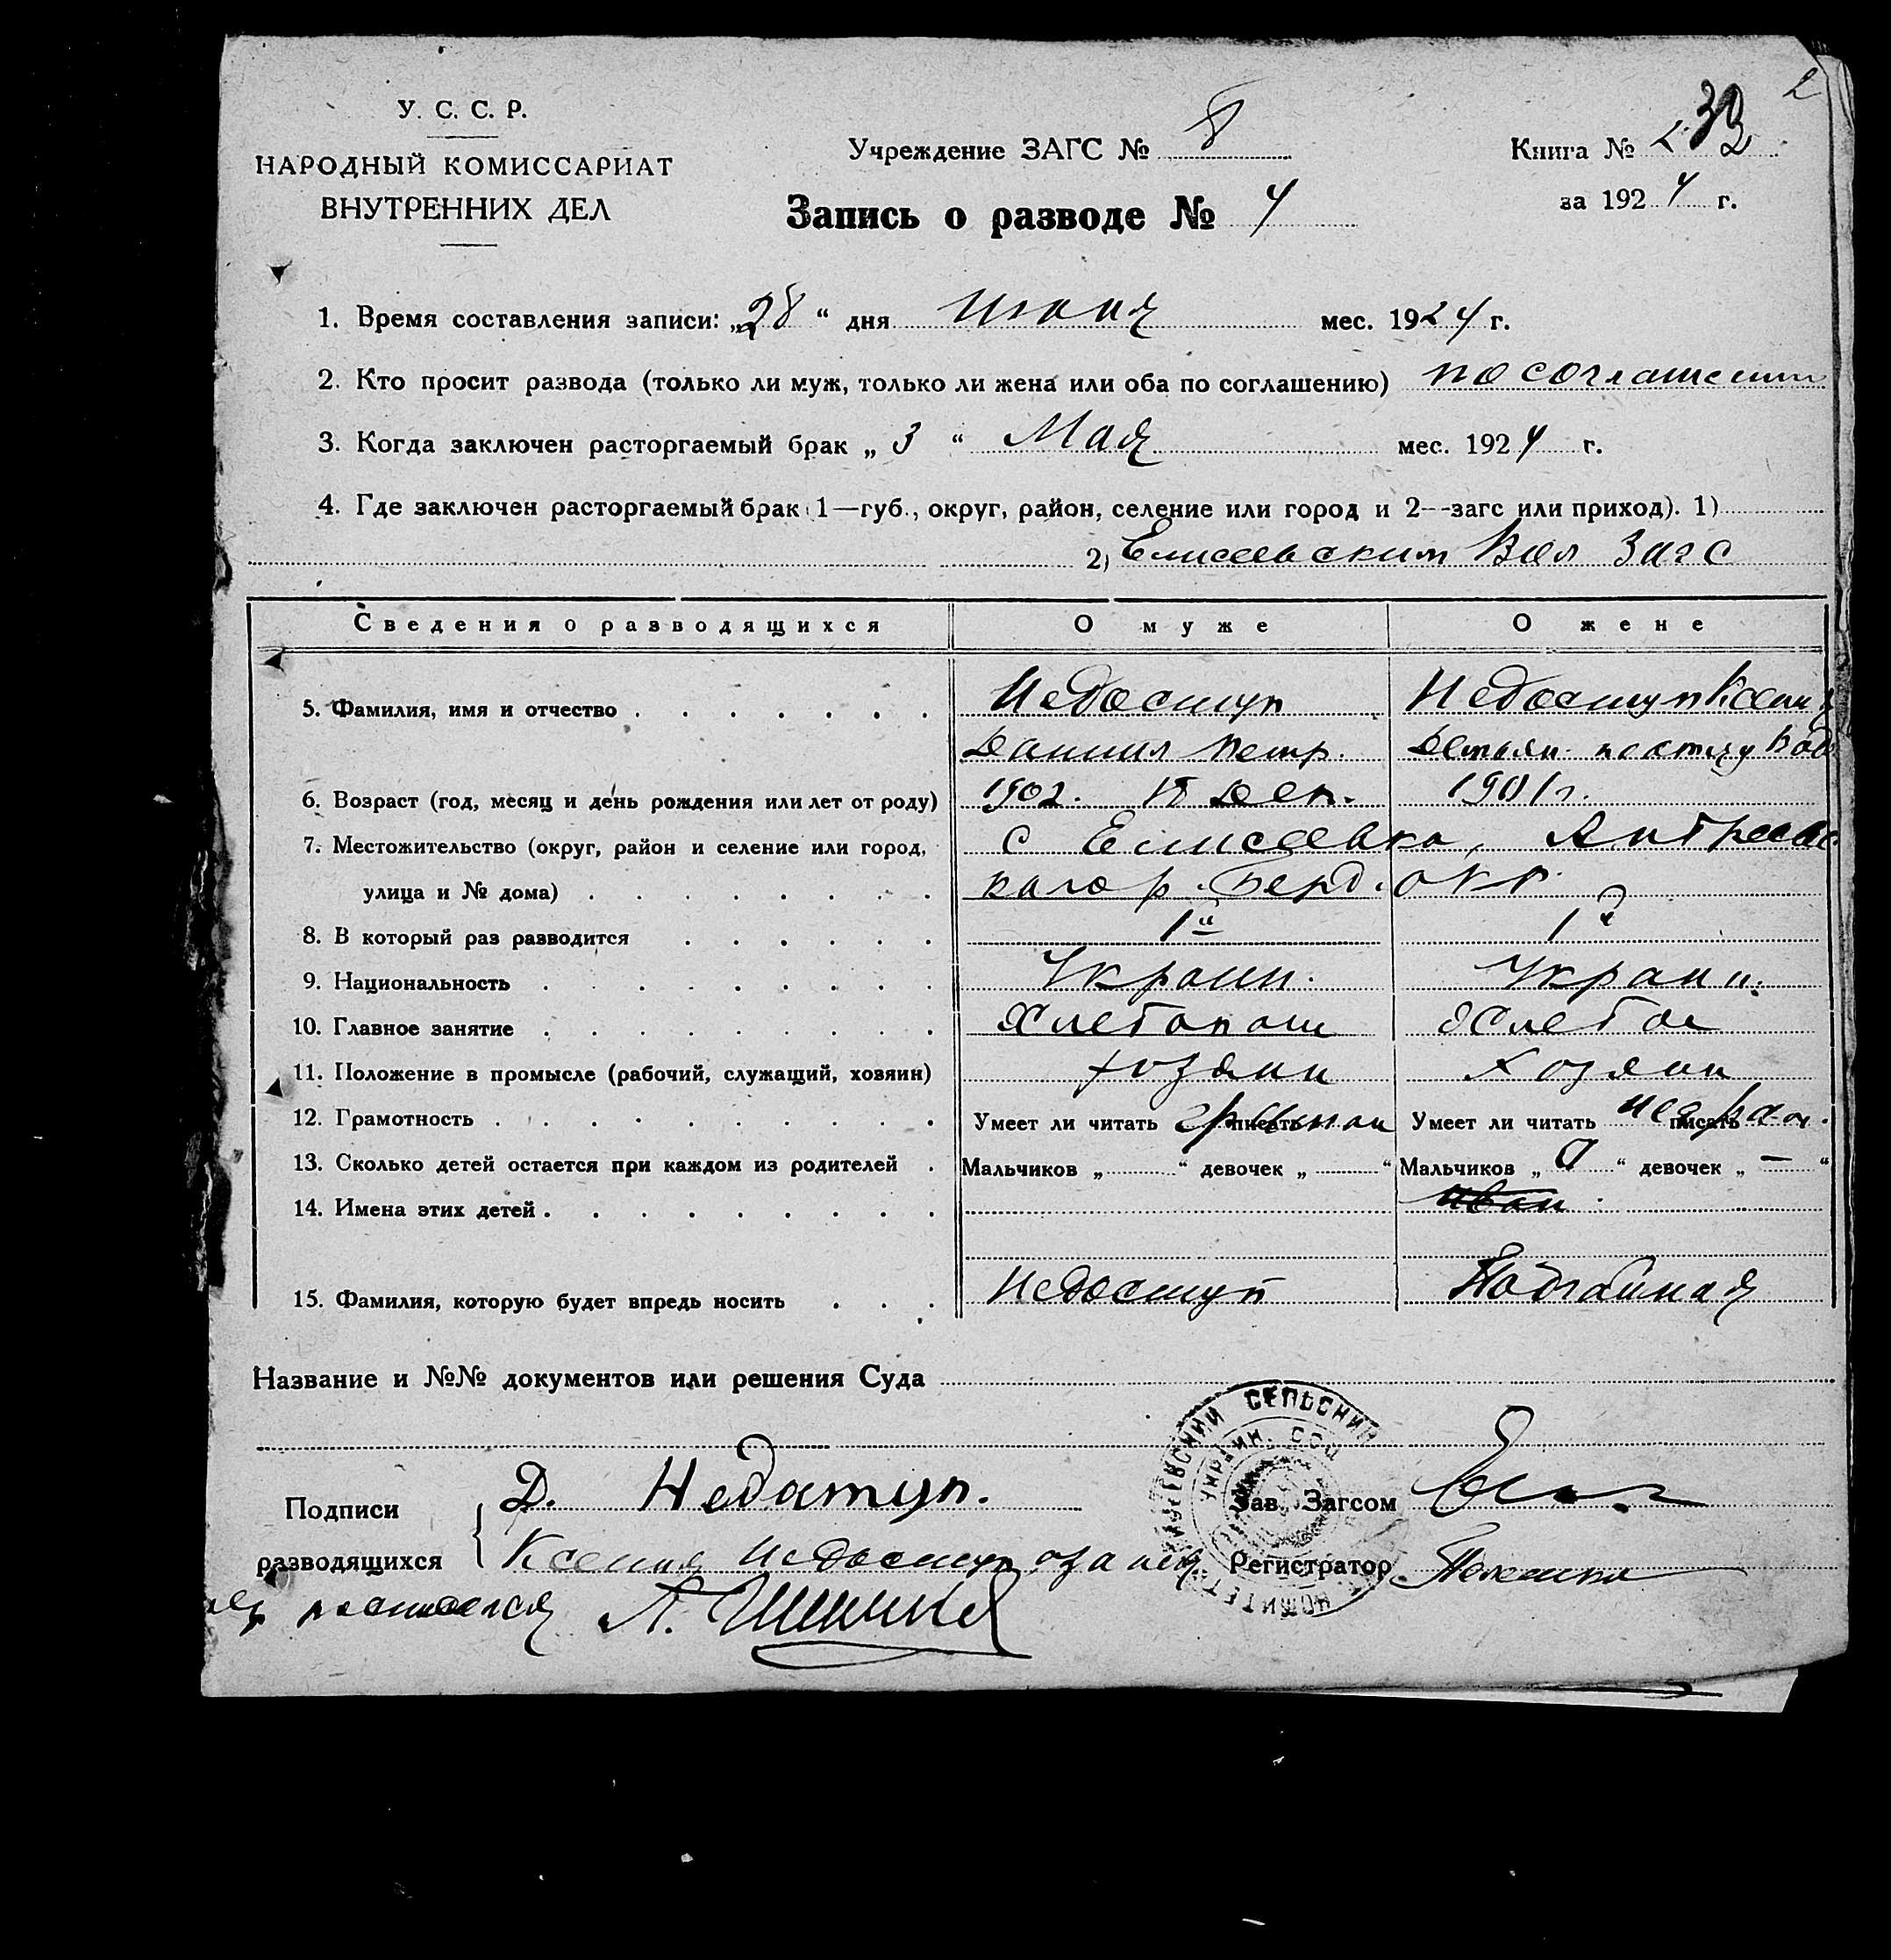 2
У. С. С. Р.
НАРОДНЫЙ КОМИССАРИАТ
ВНУТРЕННИХ ДЕЛ
Учреждение ЗАГС № 8
Запись о разводе № 4
Книга №
за 1924 г.
1. Время составления записи: „28“ дня июня мес. 1924 г.
2. Кто просит развода (только ли муж, только ли жена или оба по соглашению) по соглашению
3. Когда заключен расторгаемый брак „3“ Мая мес. 1924 г.
4. Где заключен расторгаемый брак (1—губ., округ, район, селение или город и 2—загс или приход). 1)
2) Елисеевским Вол Загс
Сведения о разводящихся О муже О жене
5. Фамилия, имя и отчество Недоступ Недоступ Ксения
Даниил Петр. Демьян.
6. Возраст (год, месяц и день рождения или лет от роду) 1902. 18 Дек. 1901 г.
7. Местожительство (округ, район и селение или город, с Елисеевка, Андреевс
улица и № дома) кого р. Берд. окр.
8. В который раз разводится 1й 1й
9. Национальность Украин. Украин.
10. Главное занятие Хлебопаш Хлебоп
11. Положение в промысле (рабочий, служащий, хозяин) хозяин хозяин
12. Грамотность Умеет ли читать писать грамотн Умеет ли читать писать неграм.
13. Сколько детей остается при каждом из родителей Мальчиков „ “ девочек „ “ Мальчиков „ “ девочек „ — “
14. Имена этих детей Иван
15. Фамилия, которую будет впредь носить Недоступ Подгайная
Название и №№ документов или решения Суда
СЕЛЬСКИЙ
УКРАИН. СОЦ
КОМИТЕТ
Подписи Д. Недоступ. Зав. Загсом
разводящихся Ксения Недоступ, а за нея Регистратор
росписался А.